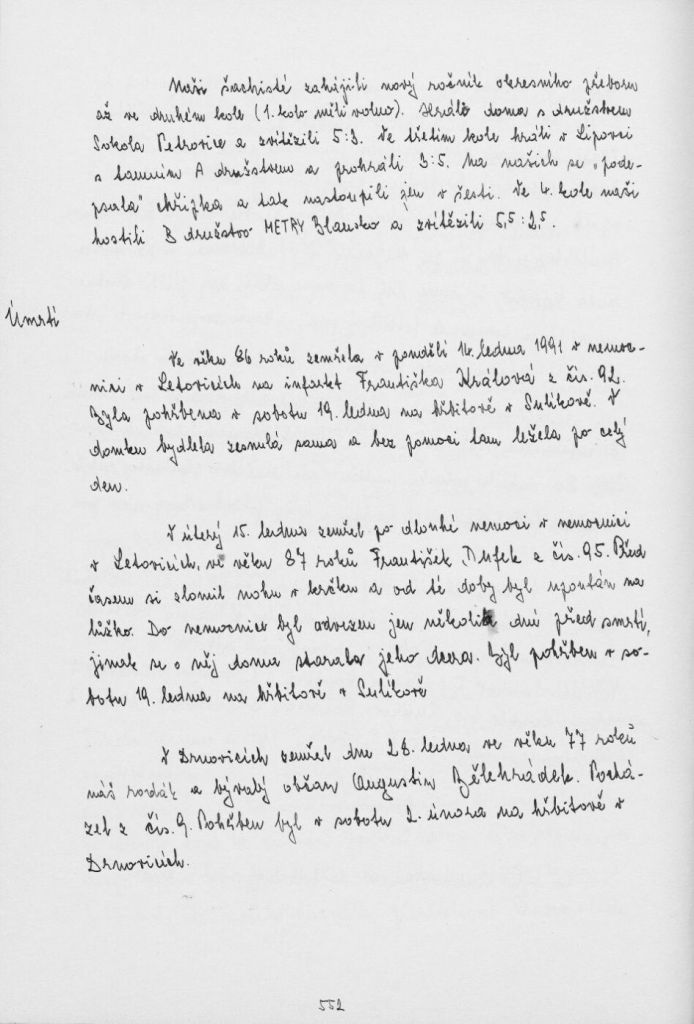 Naši šachisté zahájili nový ročník okresního přeboru
až ve druhém kole (1. kolo měli volno). Hráli doma s družstvem
Sokola Petrovice a zvítězili 5:3. Ve třetím kole hráli v Lipovci
s tamním A družstvem a prohráli 3:5. Na našich se „pode-
psala" chřipka a tak nastoupili jen v šesti. Ve 4. kole naši
hostili B družstvo METRY Blansko a zvítězili 5,5:2,5.
Úmrtí
Ve věku 86 roků zemřela v pondělí 14. ledna 1991 v nemoc-
nici v Letovicích na infarkt Františka Králová z čís. 92.
Byla pohřbena v sobotu 19. ledna na hřbitově v Sulíkově. V
domku bydlela zesnulá sama a bez pomoci tam ležela po celý
den.
V úterý 15. ledna zemřel po dlouhé nemoci v nemocnici
v Letovicích, ve věku 87 roků František Dufek z čís. 95. Před
časem si zlomil nohu v krčku a od té doby byl upoután na
lůžko. Do nemocnice byl odvezen jen několik dní před smrtí,
jinak se o něj doma starala jeho dcera. Byl pohřben v so-
botu 19. ledna na hřbitově v Sulíkově
V Drnovicích zemřel dne 28. ledna ve věku 77 roků
náš rodák a bývalý občan Augustin Bělehrádek. Pochá-
zel z čís. 9. Pohřben byl v sobotu 2. února na hřbitově v
Drnovicích.
552